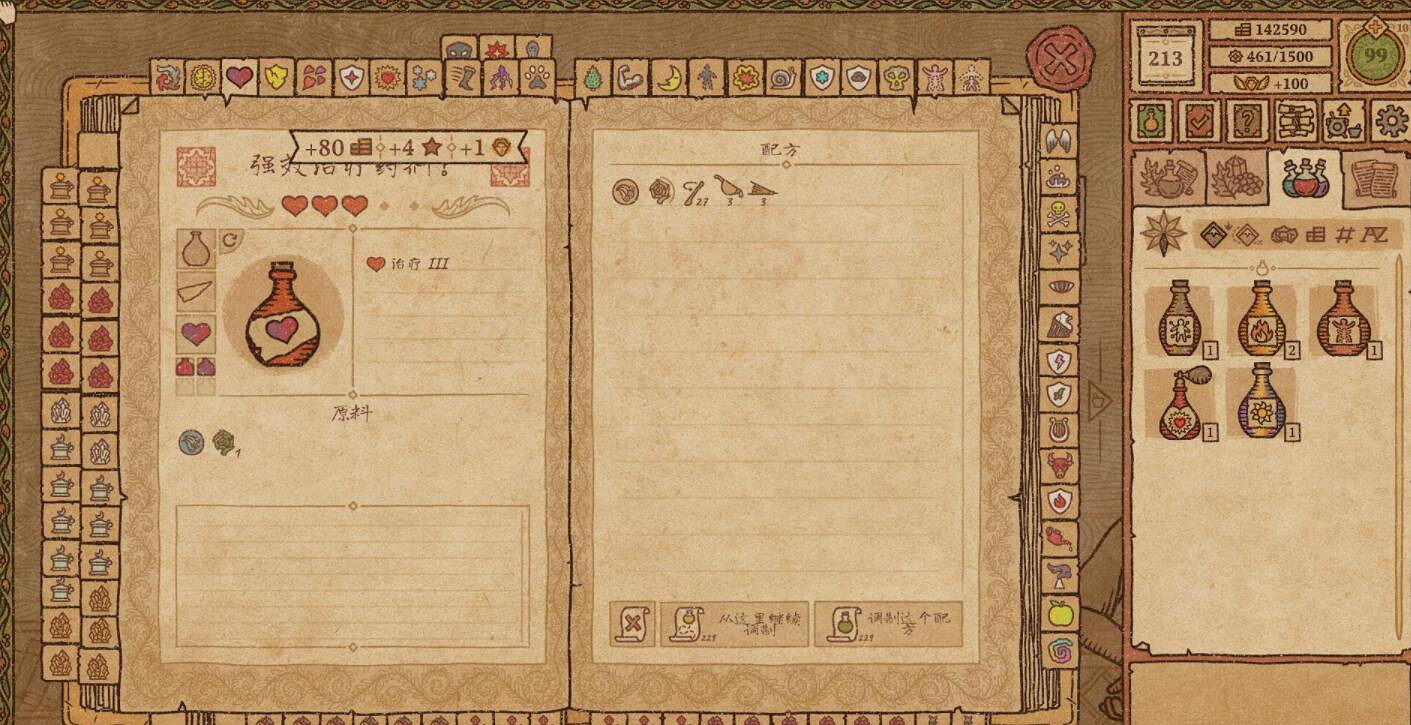 142590
213
461/1500
+100
99
+80 +4 +1
强效治疗药剂!
配方
27 3 3
治疗 III
原料
1
1 2 1
1 1
229 从这里继续
调制
229 调制这个配
方